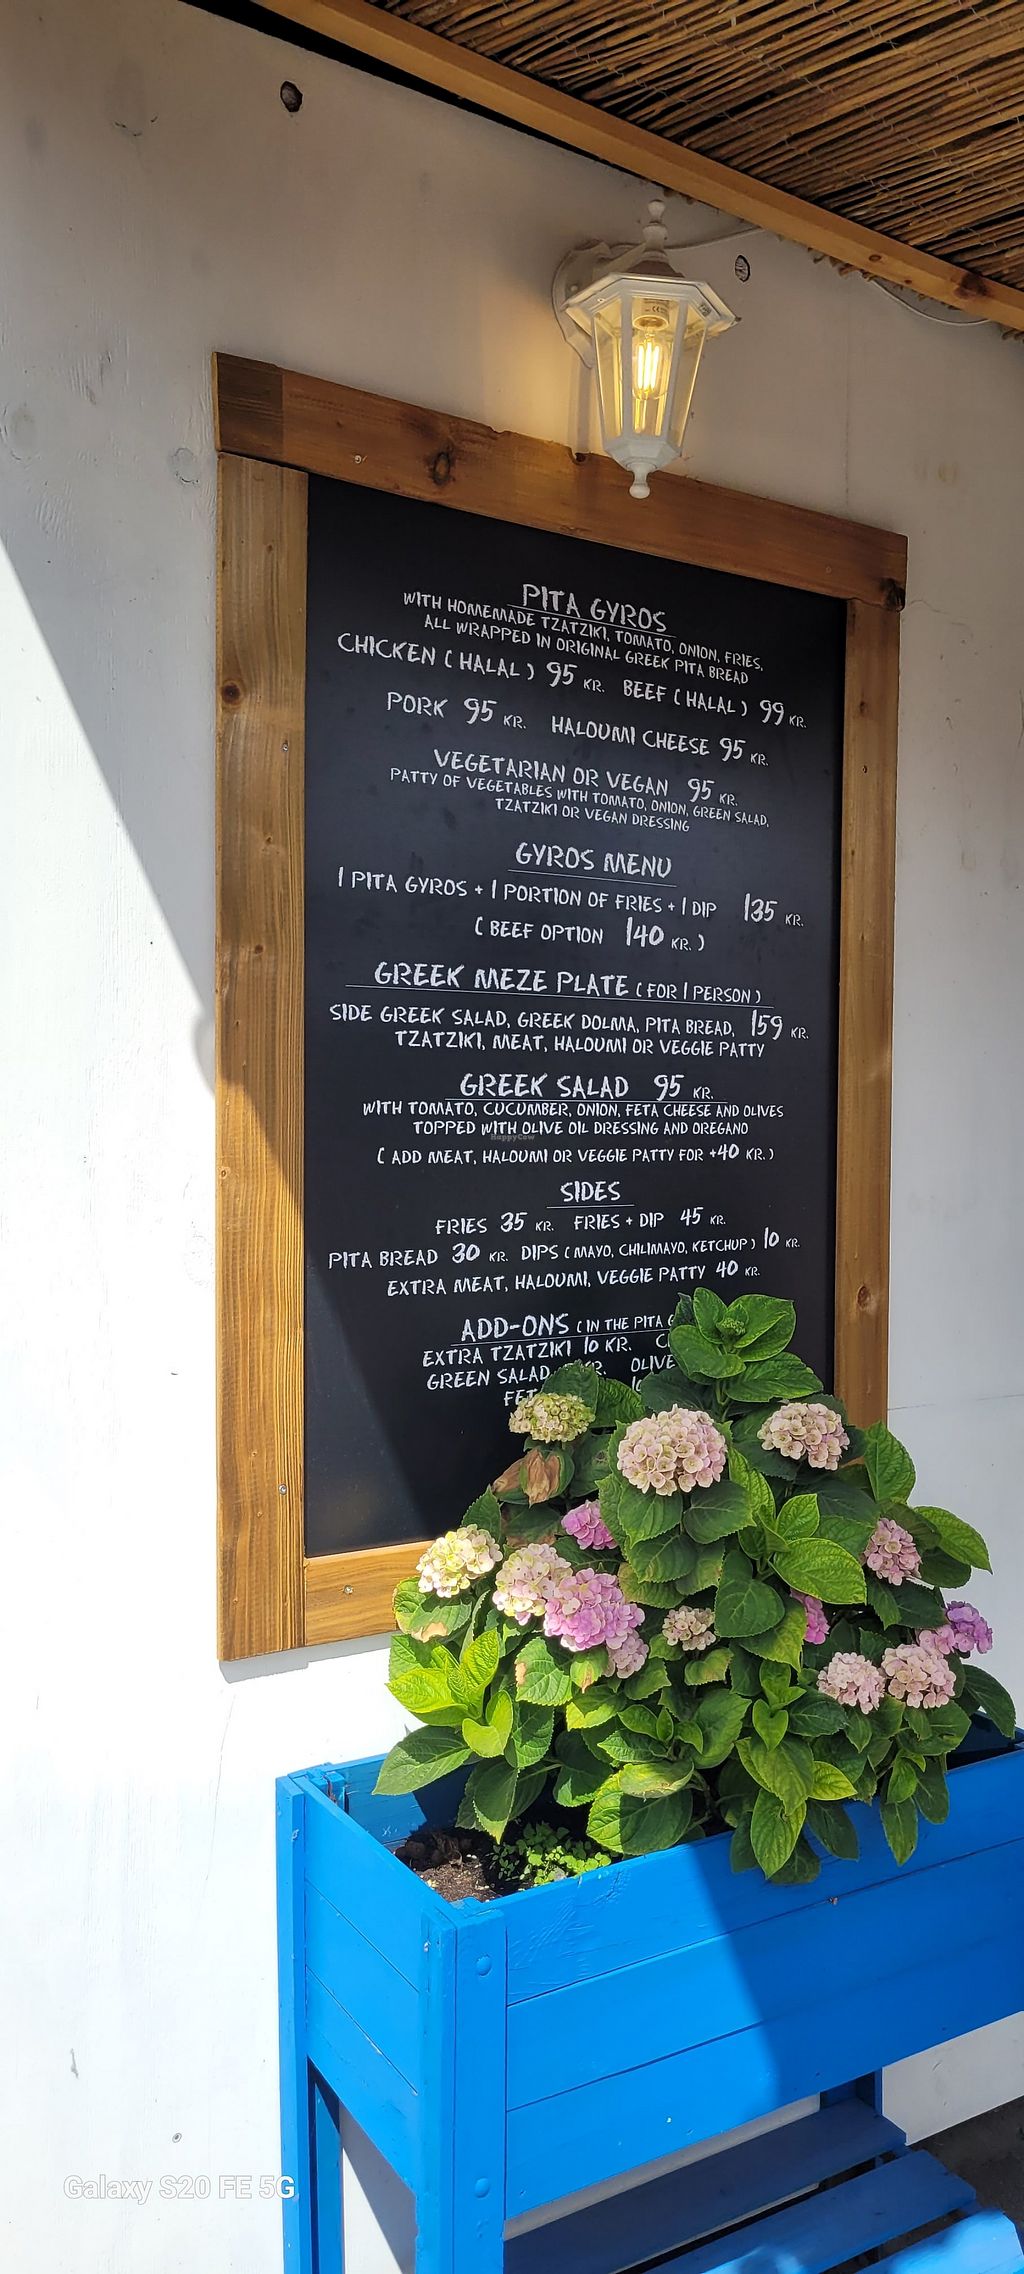 PITA GYROS
WITH HOMEMADE TZATZIKI, TOMATO, ONION, FRIES,
ALL WRAPPED IN ORIGINAL GREEK PITA BREAD
CHICKEN (HALAL) 95 KR. BEEF (HALAL) 99 KR.
PORK 95 KR. HALOUMI CHEESE 95 KR.
VEGETARIAN OR VEGAN 95 KR.
PATTY OF VEGETABLES WITH TOMATO, ONION, GREEN SALAD,
TZATZIKI OR VEGAN DRESSING
GYROS MENU
1 PITA GYROS + 1 PORTION OF FRIES + 1 DIP 135 KR.
(BEEF OPTION 140 KR.)
GREEK MEZE PLATE (FOR 1 PERSON)
SIDE GREEK SALAD, GREEK DOLMA, PITA BREAD, 159 KR.
TZATZIKI, MEAT, HALOUMI OR VEGGIE PATTY
GREEK SALAD 95 KR.
WITH TOMATO, CUCUMBER, ONION, FETA CHEESE AND OLIVES
TOPPED WITH OLIVE OIL DRESSING AND OREGANO
HappyCow
(ADD MEAT, HALOUMI OR VEGGIE PATTY FOR +40 KR.)
SIDES
FRIES 35 KR. FRIES + DIP 45 KR.
PITA BREAD 30 KR. DIPS (MAYO, CHILIMAYO, KETCHUP) 10 KR.
EXTRA MEAT, HALOUMI, VEGGIE PATTY 40 KR.
ADD-ONS (IN THE PITA
EXTRA TZATZIKI 10 KR.
GREEN SALAD
Galaxy S20 FE 5G